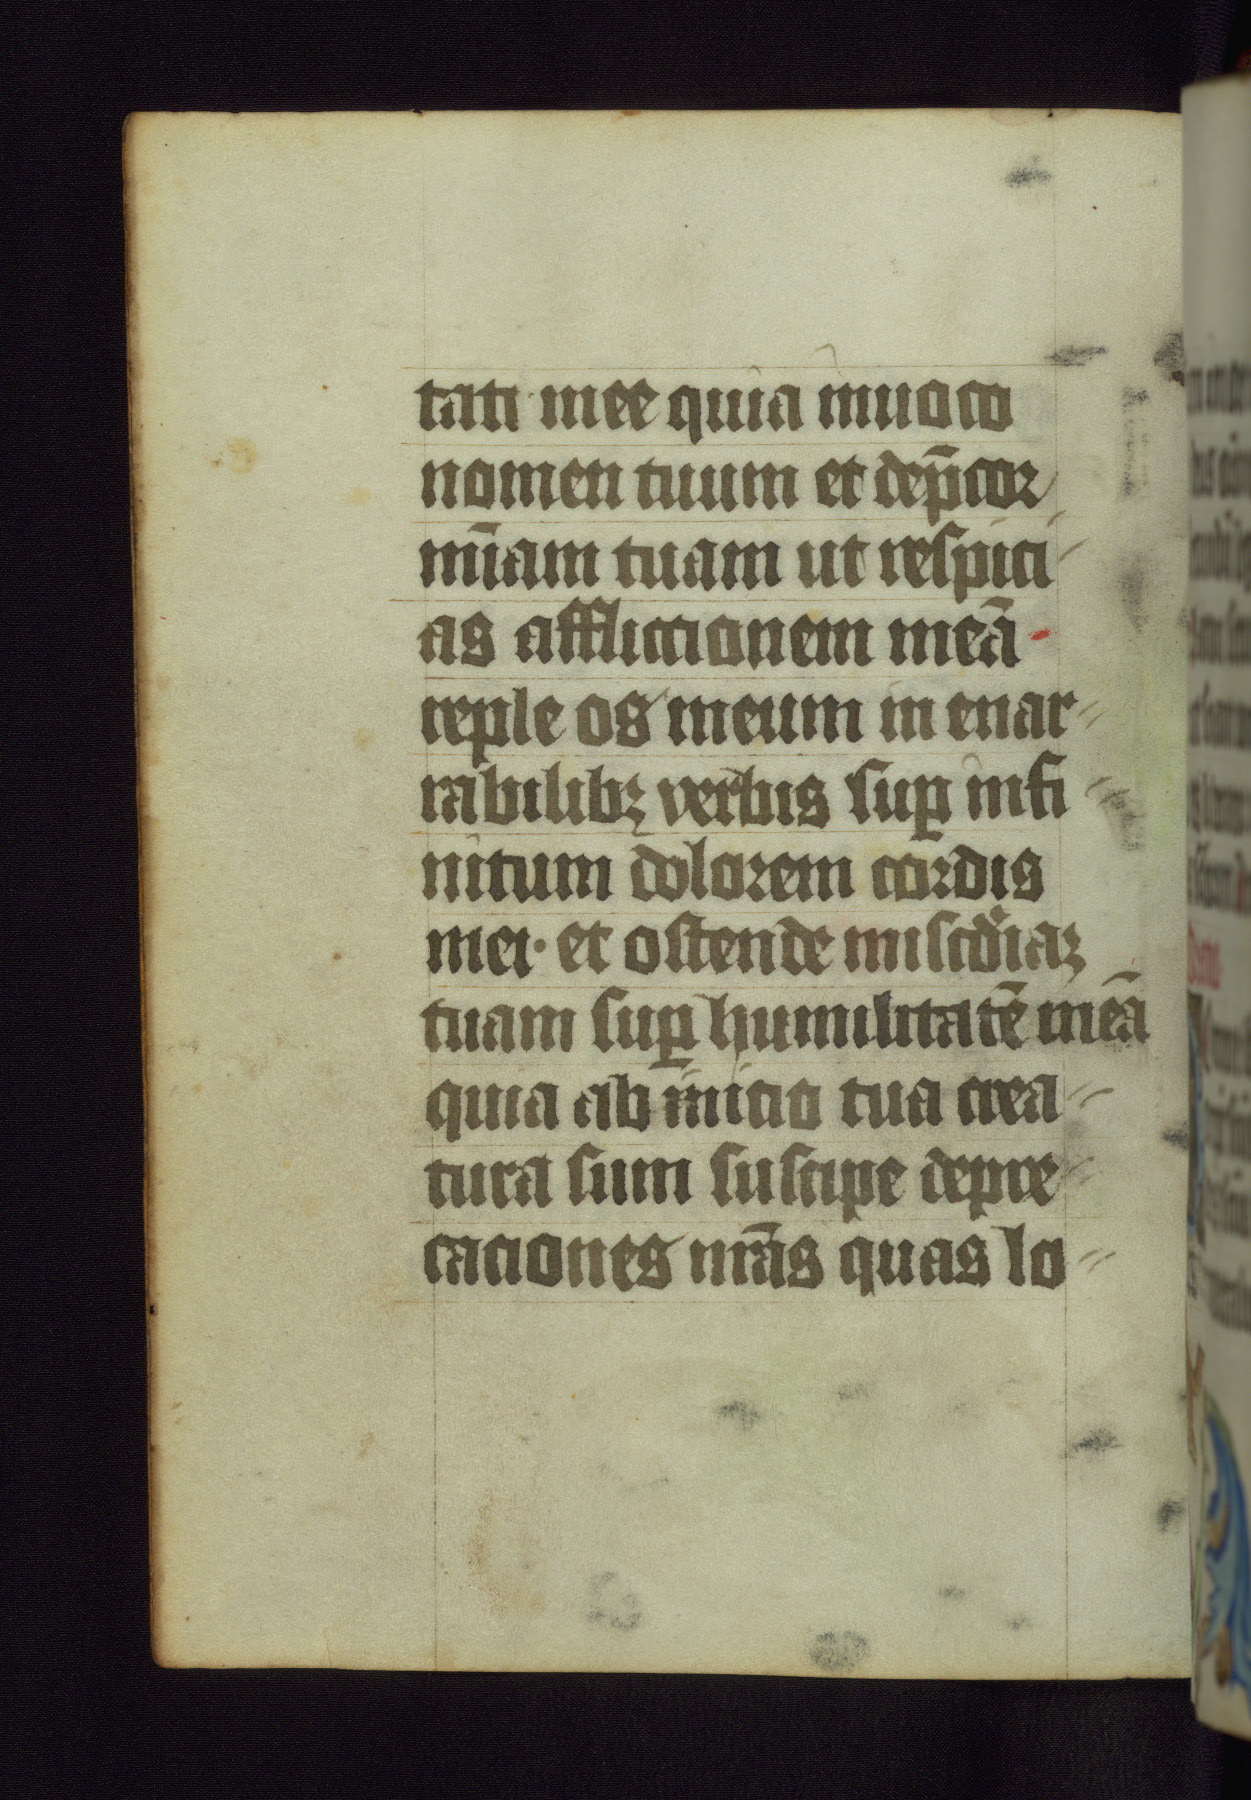 tati mee quia inuoco
nomen tuum et dep̄cor
mīam tuam ut respici
as afflictionem meā
reple os meum in enar
rabilibꝫ verbis suꝑ infi
nitum dolorem cordis
mei· et ostende misc̄diaꝫ
tuam suꝑ humilitatē meā
quia ab inicio tua crea
tura sum suscipe depre
caciones nr̄as quas lo